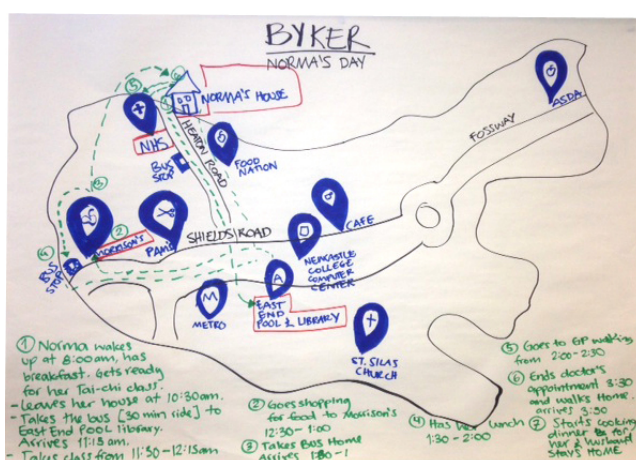 BYKER
NORMA'S DAY
NORMA'S HOUSE
NHS
HEATON ROAD
BUS
STOP
FOOD
NATION
FOSSWAY
ASDA
CAFE
SHIELDS ROAD
MORRISON'S
PAM'S
BUS
STOP
NEWCASTLE
COLLEGE
COMPUTER
CENTER
M
METRO
A
EAST
END
POOL & LIBRARY
ST. SILAS
CHURCH
① Norma wakes
up at 8:00am, has
breakfast. Gets ready
for her Tai-chi class.
- Leaves her house at 10:30am.
- Takes the bus [30 min ride] to
East End POOL library.
Arrives 11:15am.
- Takes class from 11:30-12:15am
② Goes shopping
for food to Morrison's
12:30-1:00
③ Takes Bus Home
Arrives
④ Has her lunch
1:30-2:00
⑤ Goes to GP walking
from 2:00-2:30
⑥ Ends doctor's
appointment 3:30
and walks Home.
arrives 3:50
⑦ Starts cooking
dinner for
her & husband
Stays HOME